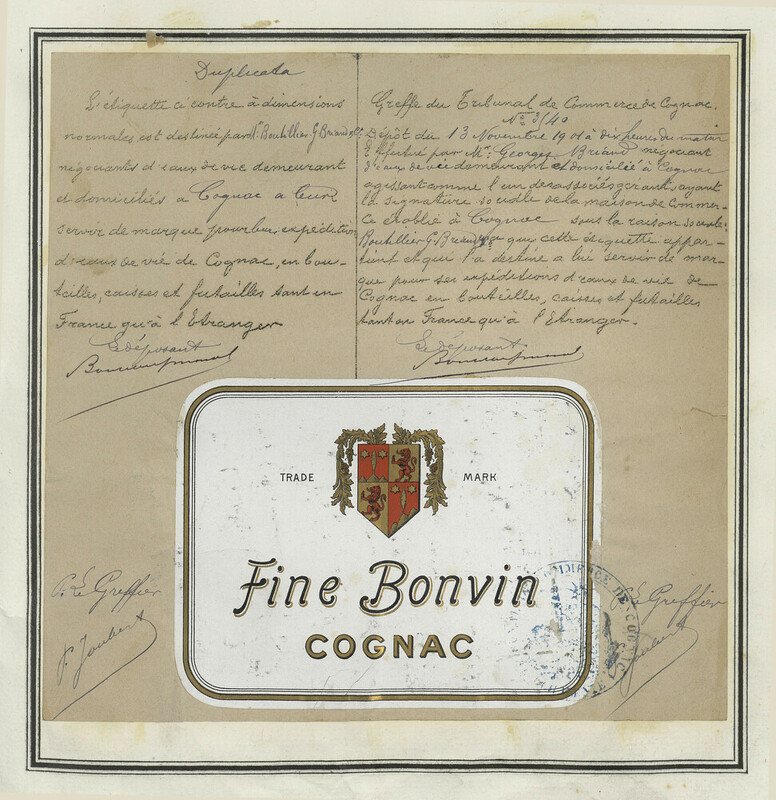 Duplicata
L'étiquette ci contre à dimensions
normales est destinée par Mrs Boutillier G. Briand & Co
négociants d'eaux de vie demeurant
et domiciliés à Cognac a leur
servir de marque pour leur expédition
d'eaux de vie de Cognac, en bou-
teilles, caisses et futailles tant en
France qu'à l'Etranger
Le déposant
Greffe du Tribunal de Commerce de Cognac.
No 3140
Dépôt du 13 Novembre 1901 à dix heures du matin
Effectué par Mr. Georges Briand négociant
d'eaux de vie demeurant et domicilié à Cognac
agissant comme l'un des associés gérants, ayant
la signature sociale de la maison de Commer-
ce établie à Cognac sous la raison sociale
Boutillier G. Briand & Co que cette étiquette appar-
tient et qui l'a destine a lui servir de mar-
que pour ses expéditions d'eaux de vie de
Cognac en bouteilles, caisses et futailles
tant en France qu'à l'Etranger.
Le déposant
TRADE MARK
Fine Bonvin
COGNAC
P. Le Greffier
P. Joubert
P. Le Greffier
Joubert